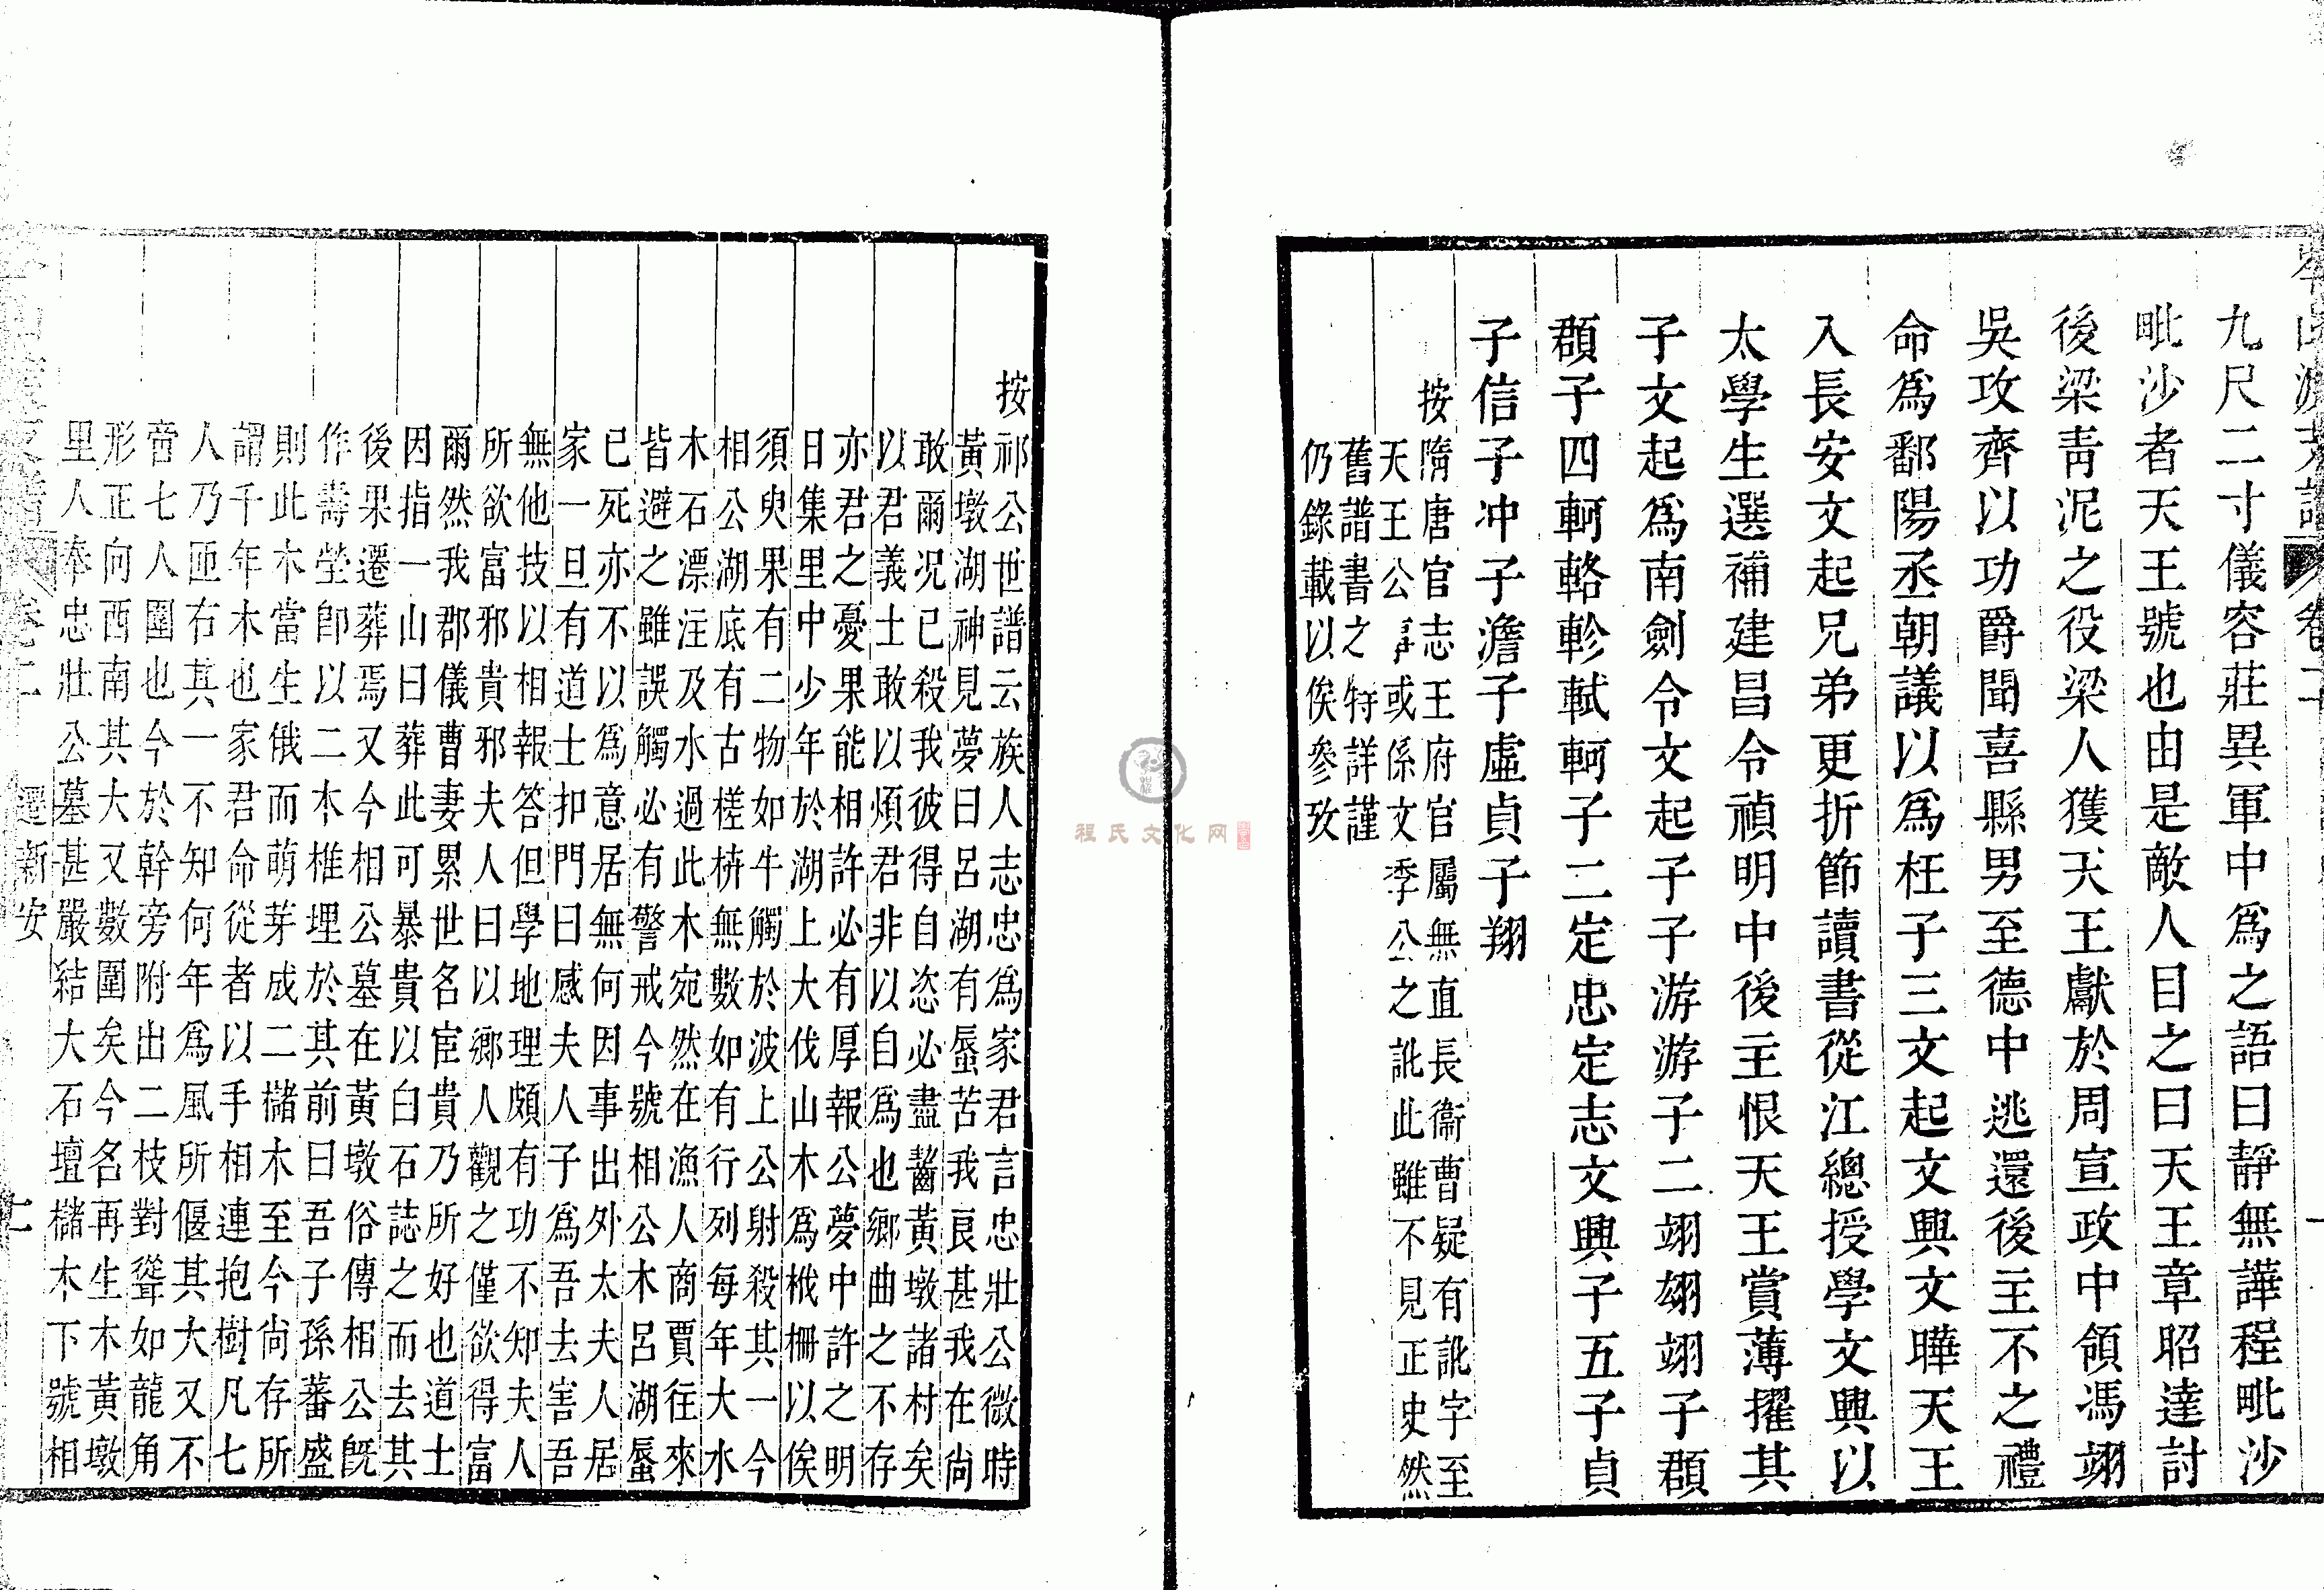 九尺二寸儀容莊異軍中爲之語曰靜無譁程毗沙
毗沙者天王號也由是敵人目之曰天王章昭達討
後梁青泥之役梁人獲天王獻於周宣政中領馮翊
吳攻齊以功爵聞喜縣男至德中逃還後主不之禮
命爲鄱陽丞朝議以爲枉子三文起文興文曄天王
入長安文起兄弟更折節讀書從江總授學文興以
太學生選補建昌令禎明中後主恨天王賞薄擢其
子文起爲南劍令文起子子游游子二翊翃翊子頵
頵子四軻輅軫軾軻子二定忠定志文興子五子貞
子信子冲子澹子虛貞子子翔
按隋唐官志王府官屬無直長衞曹疑有訛字至
天王公 或係文季公之訛此雖不見正史然
舊譜書之特詳謹
仍錄載以俟參攷
按
祁公世譜云族人志忠爲家君言忠壯公微時
黃墩湖神見夢曰呂湖有蜃苦我良甚我在尙
敢爾况已殺我彼得自恣必盡齧黃墩諸村矣
以君義士敢以煩君非以自爲也鄉曲之不存
亦君之憂果能相許必有厚報公夢中許之明
日集里中少年於湖上大伐山木爲栰柵以俟
須臾果有二物如牛觸於波上公射殺其一今
相公湖底有古槎枿無數如有行列每年大水
木石漂注及水過此木宛然在漁人商賈往來
皆避之雖誤觸必有警戒今號相公木呂湖蜃
已死亦不以爲意居無何因事出外太夫人居
家一旦有道士扣門曰感夫人子爲吾去害吾
無他技以相報答但學地理頗有功不知夫人
所欲富邪貴邪夫人曰以鄉人觀之僅欲得富
爾然我郡儀曹妻累世名宦貴乃所好也道士
因指一山曰葬此可暴貴以白石誌之而去其
後果遷葬焉又今相公墓在黃墩俗傳相公旣
作壽塋卽以二木椎埋於其前曰吾子孫蕃盛
則此木當生俄而萌芽成二櫧木至今尙存所
謂千年木也家君命從者以手相連抱樹凡七
人乃匝右其一不知何年爲風所偃其大又不
啻七人圍也今於幹旁附出二枝對聳如龍角
形正向西南其大又數圍矣今名再生木黃墩
里人奉忠壯公墓甚嚴結大石壇櫧木下號相
遷新安
程氏文化网